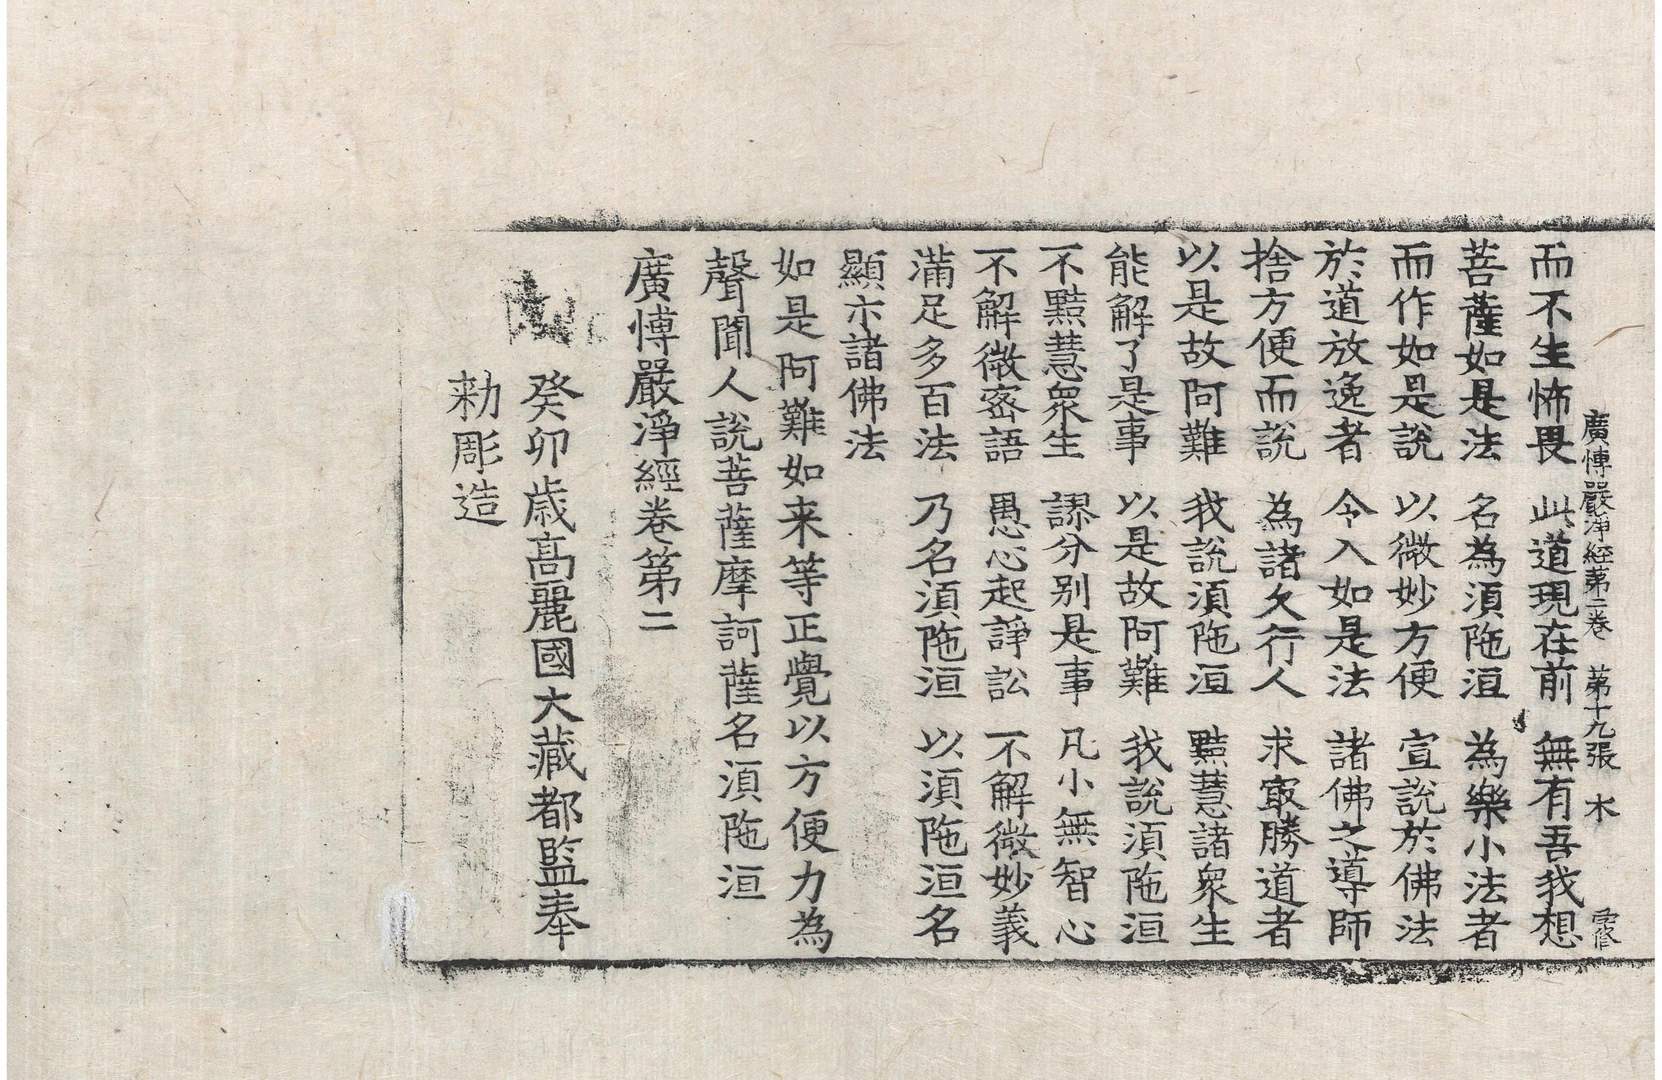 廣博嚴淨經第二卷 第十九張 木
而不生怖畏 此道現在前 無有吾我想
菩薩如是法 名為須陁洹 為樂小法者
而作如是說 以微妙方便 宣說於佛法
於道放逸者 令入如是法 諸佛之導師
捨方便而說 為諸久行人 求㝡勝道者
以是故阿難 我說須陁洹 黠慧諸衆生
能解了是事 以是故阿難 我說須陁洹
不黠慧衆生 謬分別是事 凡小無智心
不解微密語 愚心起諍訟 不解微妙義
滿足多百法 乃名須陁洹 以須陁洹名
顯示諸佛法
如是阿難如来等正覺以方便力為
聲聞人說菩薩摩訶薩名須陁洹
廣博嚴淨經卷第二
癸卯歳髙麗國大藏都監奉
勑彫造